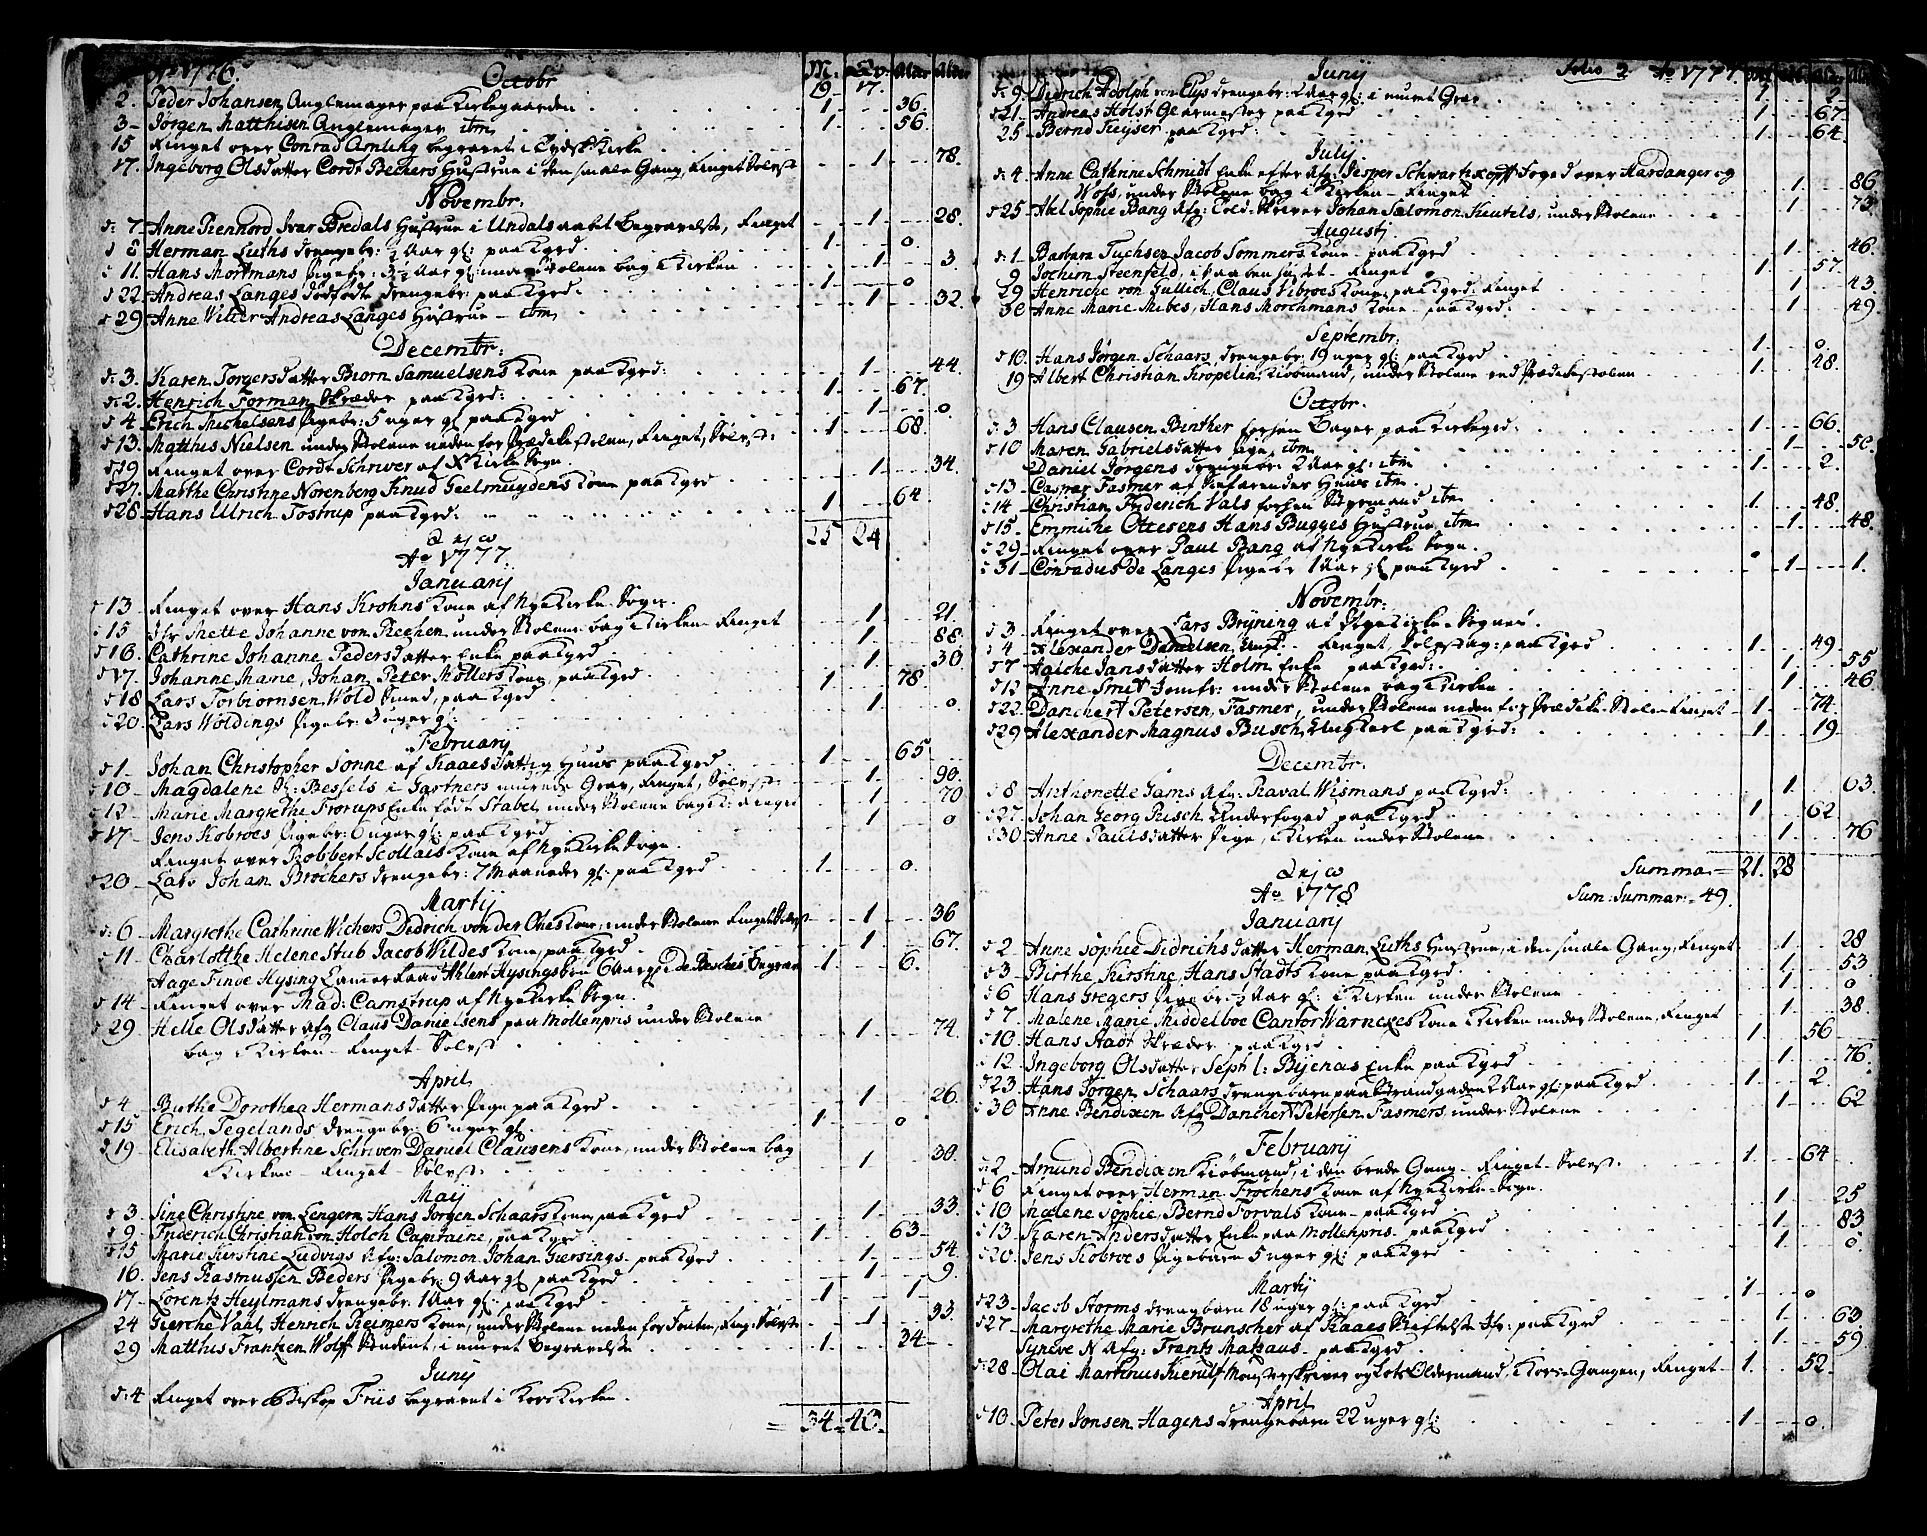 Ao 1776. Octobr M: Qv: Alder Alder
19 17.
2. Peder Johansen Anglemager paa Kirkegaarden 1 36.
3 Jørgen Matthisen Anglemager ibm 1 56.
15 Ringet over Conrad Amling begravet i Tydsk Kirke
17. Ingeborg Olsdatter Cordt Beckers Hustrue i den smale Gang, Ringet Sølvst 1 78.
Novembr:
d: 7 Anne Rennord Ivar Bredals Hustrue i Undals aabt Begravelse, Ringet 1 28.
d 8 Herman Luths drengebr: ½ Aar gl: paa Kgrd 1 0.
d 11. Hans Mortmans Pigebr: 3½ Aar gl: under Stolene bag i Kirken 1 3
d 22 Andreas Langes dødfødt drengebr: paa Kgrd: 1 0
d 29 Anne Witter Andreas Langes Hustrue - ibm 1 32.
Decembr:
d: 3. Karen Torgersdatter Biørn Samuelsens Kone paa Kgrd: 1 44
d: 2. Henrich Forman Skræder paa Kgrd: 1 67.
d 4 Erich Michelsens Pigebr: 5 uger gl paa Kgrd 1 0.
d 13. Matthis Nielsen under Stolene neden for Prædikestolen, Ringet, Sølvst: 1 68.
d 19 Ringet over Cordt Schriver af X Kirke Sogn.
d 27. Marthe Christine Norenberg Knud Geelmuydens Kone paa Kgrd 1 34.
d 28 Hans Ulrich Tostrup paa Kgrd: 1 64
25 24
Ao 1777.
January
d 13 Ringet over Hans Krohns Kone af Nye Kirke Sogn.
d 15 Jfr Mette Johanne von Reehen under Stolene bag i Kirken Ringet 1 21.
d 16. Cathrine Johanne Pedersdatter Enke paa Kgrd 1 88.
d 17. Johanne Marie, Johan Peter Møllers Kone, paa Kgrd 1 30
d 18 Lars Torbiornsen Wold Smed, paa Kgrd 1 78
d 20 Lars Woldings Pigebr: 3 uger gl: 1 0
February
d 1 Johan Christopher Sonne af Raaes Fattig Huus paa Kgrd 1 65
d 10 Magdalene Sl: Bessels i Gartners murede Grav, Ringet, Sølvst 1 90.
d 12 Marie Margrethe Frorups Enke født Stabel under Stolene bag i K: Ringet 1 70
d 17 Jens Kobroes Pigebr: 6 uger gl: paa Kgrd 1 0
Ringet over Robbert Scollais Kone af Nye Kirke Sogn.
d 20 Lars Johan Brøchers drengebr: 7 Maaneder gl: paa Kgrd 1 0.
Martij
d: 6 Margrethe Cathrine Wichers Didrich von der Ohes Kone, under Stolene Ringet Sølvst 1 36
d 11 Charlotthe Helene Stub Jacob Wildes Kone, paa Kgrd 1 67.
Aage Finde Hysing Cammerraad Ahlert Hysings Søn 6 Aar gl: i De Besches Begrav 1 6.
d 14 Ringet over Mad: Camstrup af Nye Kirke Sogn.
d 29 Helle Olsdatter Afg: Claus Danielsens paa Møllenpris under Stolene
bag i Kirken - Ringet - Sølvst 1 74.
April
d 4 Birthe Dorothea Hermansdatter Pige paa Kgrd 1 26.
d 15 Erich Tegelands drengebr: 6 uger gl 1 0
d 19 Elisabeth Albertine Schriver Daniel Clausens Kone, under Stolene bag
i Kirken - Ringet - Sølvst: 1 30.
Maij
d 3 Sine Christine von Lengern Hans Jørgen Schaars Kone paa Kgrd 1 33.
d 9 Friderich Christian von Holch Capitaine, paa Kgrd 1 63
d 15 Marie Kirstine Ludvigs Afg: Salomon Johan Giersings paa Kgrd 1 54.
16. Jens Rasmussen Beders Pigebr: 9 Aar gl paa Kgrd 1 9.
17 Lorentz Heylmans drengebr: 1 Aar gl: paa Kgrd 1 1
24 Gierche Vahl Henrich Reimers Kone, under Stolene neden for Fonten, Ring: Sølvst 1 33.
29 Matthis Frantzen Wolff Student, i muret Begravelse 1 34
Junij
d: 4 Ringet over Biskop Friis begravet i Kors Kirken.
= 34 40.
Junij Folio 2 Ao 1777
d: 9 Didrich Adolph von Elys drengebr: 2 Aar gl: i muret Grav 1 2
d 21 Andreas Holst Glarmester paa Kgrd 1 67
25 Bernd Kuyser paa Kgrd: 1 64
Julij.
d: 4 Anne Cathrine Schmidt Enke efter Afg: Jesper Schwartzkopff Foged over Hardanger og
Wofs, under Stolene bag i Kirken - Ringet 1 86.
d 25 Abel Sophie Bang Afg: Told-Skriver Johan Salomon Kieutels, under Stolene 1 73
Augusti
d: 1 Barbara Fuchsen Jacob Sommers Kone paa Kgrd 1 46.
9 Jochim Steenfeld, i Vaabenhuset - Ringet 1 57.
29 Henriche von Gullich, Claus Vibroes Kone, paa Kgrd. Ringet 1 43.
30 Anne Marie Mibes, Hans Morchmans Kone - paa Kgrd: 1 49.
Septembr:
d 10. Hans Jørgen Schaars drengebr: 19 uger gl: paa Kgrd 1 0.
19 Albert Christian Kropelin Kiøbmand, under Stolene ved Prædikestolen 1 48.
Octobr.
d: 3 Hans Clausen Binther forhen Bager paa Kirkegrd: 1 66.
d 10 Maren Gabrielsdatter Pige, ibm 1 50.
Daniel Jørgens drengebr: 2 Aar gl: ibm 1 2.
d 13 Casper Fasmer af Søefarendes Huus ibm.
d 14 Christian Friderich Vals forhen Styrmand ibm 1 48
d 15. Emmiche Ottesens Hans Bugges Hustrue ibm 1 48.
d 29 Ringet over Paul Bang af Nye Kirke Sogn.
d 31 Conradus de Langes Pigebr 1 Aar gl paa Kgrd 1 1.
Novembr:
d 3 Ringet over Lars Bryning af Nye Kirke Sognet.
d 4 Alexander Danielsen, Ungk. Ringet, Sølvstag: paa Kgrd 1 49
d 7 Aalche Jansdatter Holm Enke paa Kgrd: 1 55
d 12 Anne Smit Jomfr: under Stolene bag i Kirken 1 46
d 22 Danchert Petersen, Fasmer, under Stolene neden for Prædike-Stolen Ringet 1 74.
d 29 Alexander Magnus Busch, Ung Karl paa Kgrd: 1 19
Decembr.
d 8 Anthonette Gams Afg: Raval Wismans paa Kgrd: 1 63.
d 27. Johan Georg Rusch Underfoged paa Kgrd 1 62
d 30 Anne Paulsdatter Pige, i Kirken under Stolene 1 76
Summa = 21. 28
Ao 1778 Sum: Summar: = 49.
January
d 2 Anne Sophie Didrichsdatter Herman Luths Hustrue, i den smale Gang, Ringet 1 28
d 3 Birthe Kirstine, Hans Stadts Kone paa Kgrd 1 53
d 6 Hans Gregers Pigebr: ½ Aar gl: i Kirken under Stolene 1 0
d 7 Malene Marie Middelboe Cantor Warnekes Kone i Kirken under Stolene, Ringet 1 38.
d 10. Hans Stadt Skræder paa Kgrd 1 56
d 12 Ingeborg Olsdatter Seph l: Byenas Enke paa Kgrd 1 76.
d 23. Hans Jørgen Schaars drengebarn paa Strandgaden 2 Aar gl: paa Kgrd 1 2.
d 30 Anne Bendixen Afg: Danchert Petersen Fasmers, under Stolene 1 62
February
d: 2 Amund Bendixen Kiøbmand, i den brede Gang - Ringet - Sølvst: 1 64
d 6 Ringet over Herman Frochens Kone af Nye Kirke-Sogn.
d 10 Malene Sophie, Bernd Forvals Kone - paa Kgrd 1 25
d 13 Karen Andersdatter Enke paa Møllenpris paa Kgrd 1 83
d 20. Jens Kobroes Pigebarn 5 uger gl: paa Kgrd 1 0.
Martij
d 23 Jacob Storms drengebarn 18 uger gl: paa Kgrd 1 0
d 27 Margrethe Marie Brunscher af Raaes Stiftelse Jfr: paa Kgrd 1 63.
Syneve N Afg: Frantz Matzaus paa Kgrd 1 59
d: 28 Olai Martinus Kierulf Mønsterskriver og Lots Oldermand, i Kors-Gangen, Ringet 1 52.
April
d 10. Peter Jonsen Hagens drengebarn 22 uger gl: 1 0.